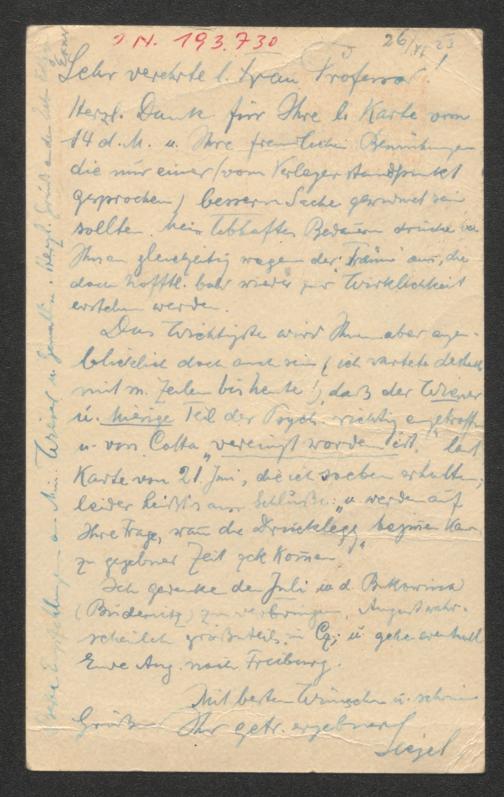 I.N. 193.730
26/VI 23
Sehr verehrte l. Frau Professor!
Herzl. Dank für Ihre l. Karte vom
14 d. M. u. Ihre freundlichen Bemühungen
die nur einer (vom Verlegerstandpunkt
gesprochen) bessern Sache gewidmet sein
sollten. Mein lebhaftes Bedauern drücke ich
Ihnen gleichzeitig wegen der Träume aus, die
doch hofftl. bald wieder zur Wirklichkeit
erstehen werden.
Das Wichtigste wird Ihnen aber augen-
blicklich doch auch sein (ich wartete deshalb
mit m. Zeilen bis heute!), daß der Wiener
u. hiesige Teil der Psych. richtig eingetroffen
u. von Cotta „vereinigt worden ist." laut
Karte vom 21 Juni, die ich soeben erhalten,
leider heißt's am Schluße: „u. werden auf
Ihre Frage, wann die Drucklegg. beginnen kann
zu gegebener Zeit zurückkommen"
Ich gedenke den Juli in d. Bukowina
zu verbringen, August wahr-
scheinlich größtenteils in Cz. u. gehe eventuell
Ende Aug. nach Freiburg.
Mit besten Wünschen u. schönen
Grüßen Ihr getr. ergebener
Siegel
Meine Empfehlungen an Min. Wieser u. Gemahlin. Herzl. Grüße an den lieben